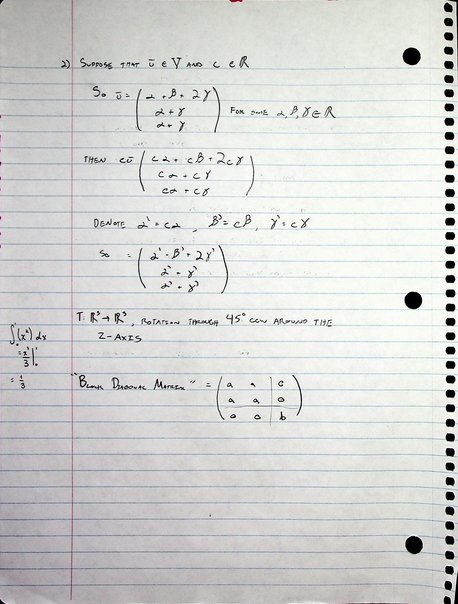 2) SUPPOSE THAT ū ∈ V AND c ∈ ℝ
So ū = ( α + β + 2γ
α + γ
α + γ ) FOR SOME α, β, γ ∈ ℝ
THEN cū ( cα + cβ + 2cγ
cα + cγ
cα + cγ )
DENOTE α' = cα , β' = cβ , γ' = cγ
So = ( α' + β' + 2γ'
α' + γ'
α' + γ' )
T: ℝ³ → ℝ³, ROTATION THROUGH 45° CCW AROUND THE
Z-AXIS
∫₀¹ (x²) dx
= x³/3 |₀¹
= 1/3
"BLOCK DIAGONAL MATRIX" = ( a a | c
a a | o
o o | b )